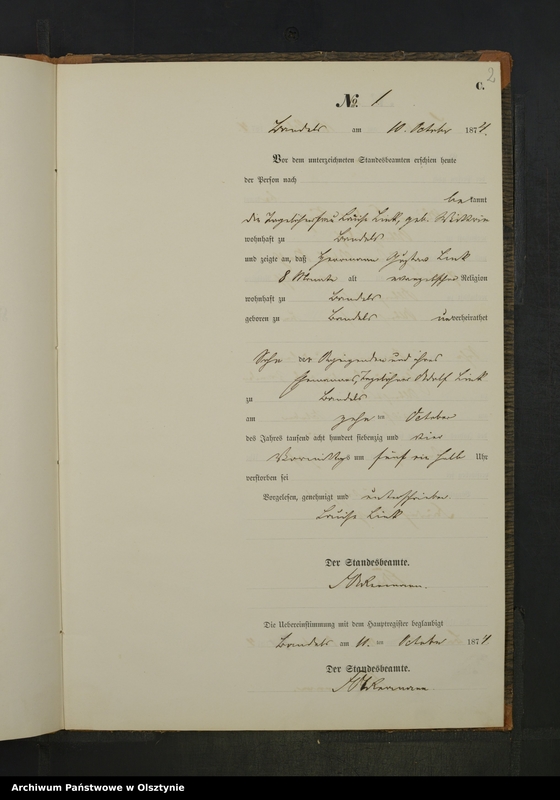 2
C.
No. 1
Bandels am 10. October 1874.
Vor dem unterzeichneten Standesbeamten erschien heute
der Person nach
bekannt
die Tagelöhnerfrau Louise Link, geb. Wittrin
wohnhaft zu Bandels
und zeigte an, daß Herrmann Gustav Link
8 Monate alt evangelischer Religion
wohnhaft zu Bandels
geboren zu Bandels unverheirathet
Sohn der Anzeigenden und ihres
Ehemannes, Tagelöhner Adolf Link
zu Bandels
am zehn ten October
des Jahres tausend acht hundert siebenzig und vier
Vormittags um fünf ein halb Uhr
verstorben sei
Vorgelesen, genehmigt und unterschrieben.
Louise Link
Der Standesbeamte.
Die Uebereinstimmung mit dem Hauptregister beglaubigt
Bandels am 10. ten October 1874
Der Standesbeamte.
Archiwum Państwowe w Olsztynie